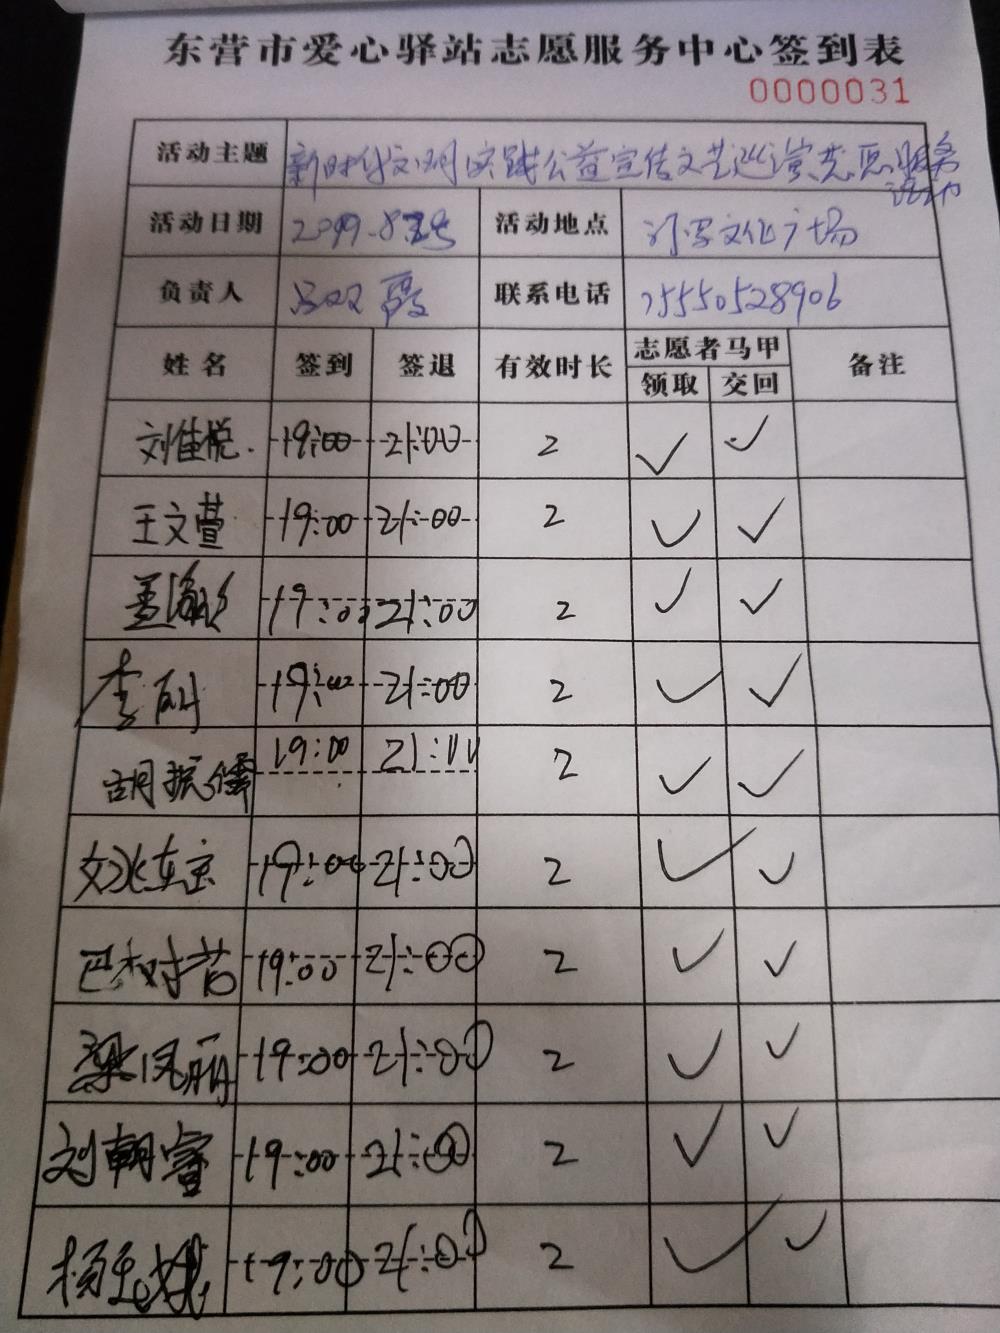 东营市爱心驿站志愿服务中心签到表
0000031
活动主题 新时代文明实践公益宣传文艺巡演志愿服务
活动
活动日期 活动地点 文化广场
负责人 联系电话 15550528906
姓名 签到 签退 有效时长 志愿者马甲 备注
领取 交回
刘佳悦 19:00 21:00 2 ✓ ✓
王文萱 19:00 21:00 2 ✓ ✓
孟 19:00 21:00 2 ✓ ✓
李 19:00 21:00 2 ✓ ✓
胡振儒 19:00 21:00 2 ✓ ✓
19:00 21:00 2 ✓ ✓
巴 19:00 21:00 2 ✓ ✓
梁凤丽 19:00 21:00 2 ✓ ✓
刘朝睿 19:00 21:00 2 ✓ ✓
杨 19:00 21:00 2 ✓ ✓